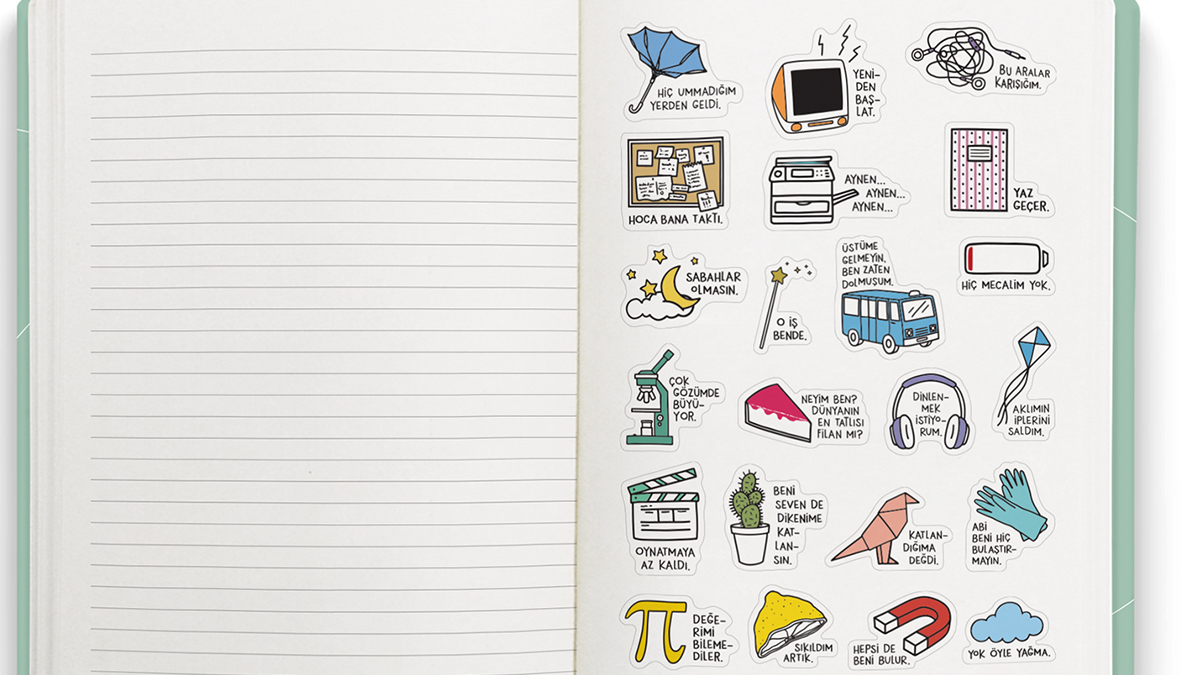 HİÇ UMMADIĞIM
YERDEN GELDİ.
YENİ-
DEN
BAŞ-
LAT.
BU ARALAR
KARIŞIĞIM.
HOCA BANA TAKTI.
AYNEN...
AYNEN...
AYNEN...
YAZ
GEÇER.
SABAHLAR
OLMASIN.
O İŞ
BENDE.
ÜSTÜME
GELMEYİN,
BEN ZATEN
DOLMUŞUM.
HİÇ MECALİM YOK.
ÇOK
GÖZÜMDE
BÜYÜ-
YOR.
NEYİM BEN?
DÜNYANIN
EN TATLISI
FİLAN MI?
DİNLEN-
MEK
İSTİYO-
RUM.
AKLIMIN
İPLERİNİ
SALDIM.
OYNATMAYA
AZ KALDI.
BENİ
SEVEN DE
DİKENİME
KAT-
LAN-
SIN.
KATLAN-
DIĞIMA
DEĞDİ.
ABİ
BENİ HİÇ
BULAŞTIR-
MAYIN.
π
DEĞE-
RİMİ
BİLEME-
DİLER.
SIKILDIM
ARTIK.
HEPSİ DE
BENİ BULUR.
YOK ÖYLE YAĞMA.